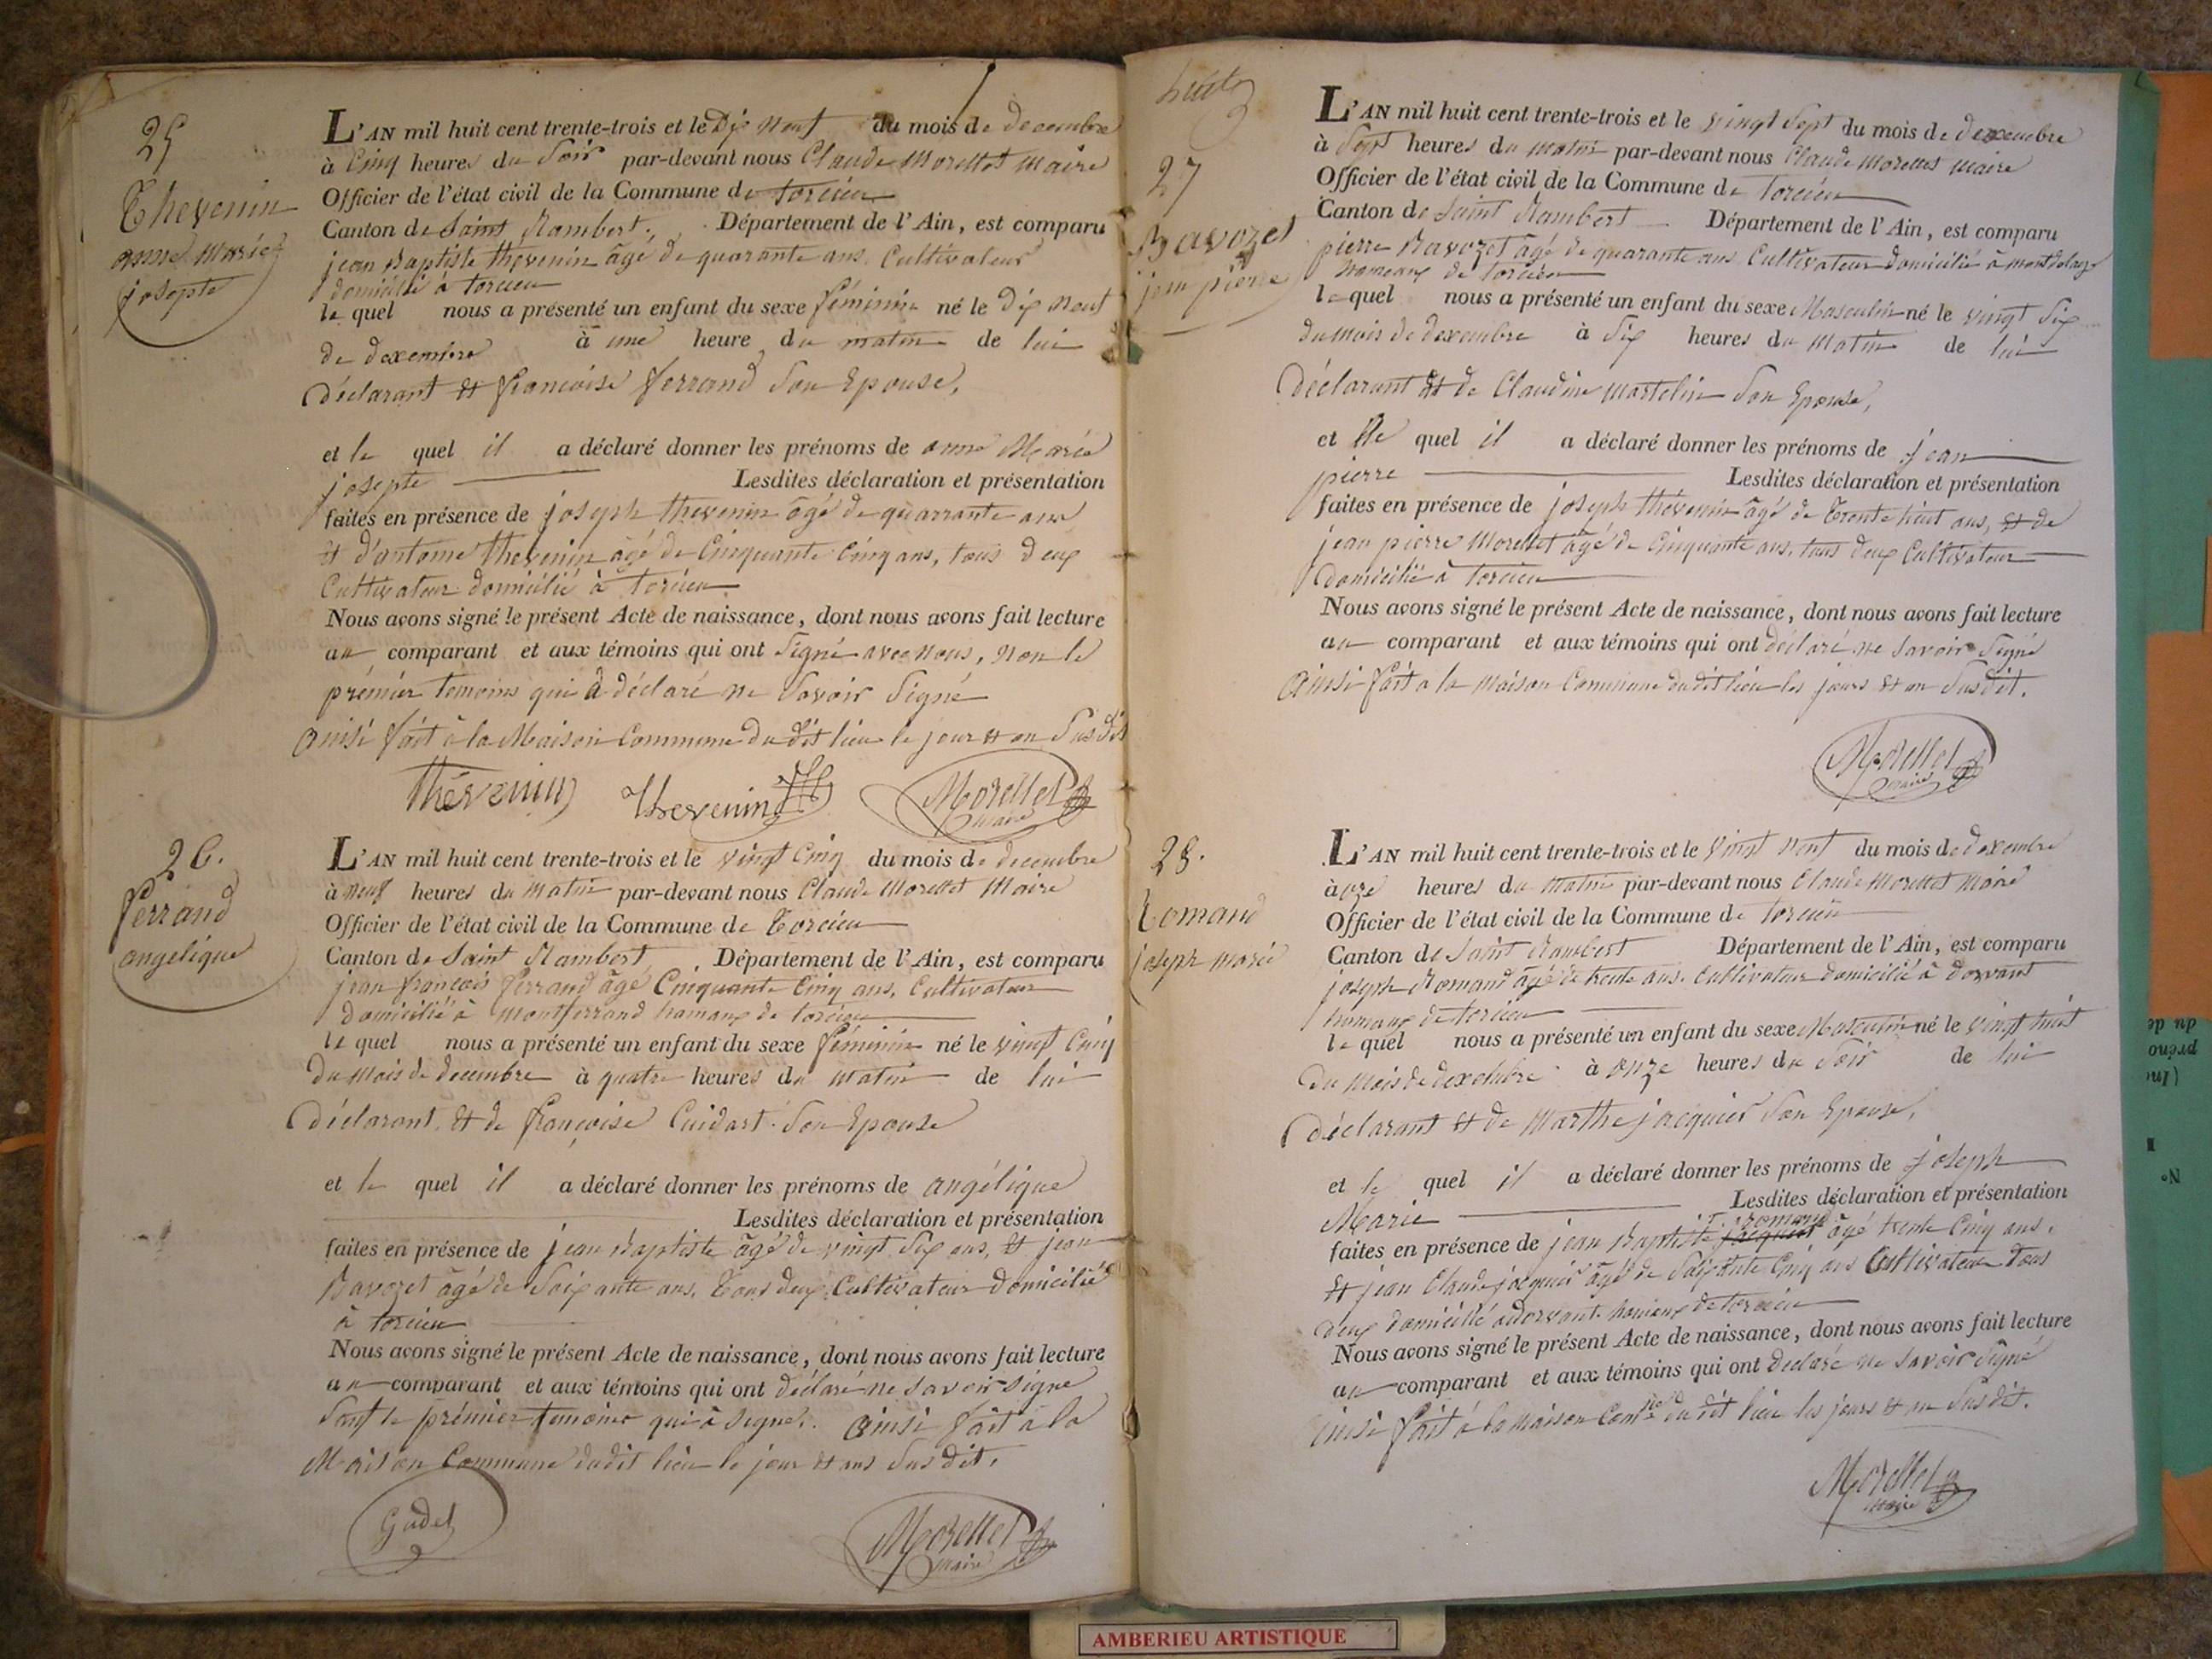 25
Thevenin
anne Marie
josepte
L'AN mil huit cent trente-trois et le Dix neuf du mois de decembre
à Cinq heures du Soir par-devant nous Claude Morettet Maire
Officier de l'état civil de la Commune de torcieu
Canton de Saint Rambert. Département de l'Ain, est comparu
jean Baptiste thévenin âgé de quarante ans Cultivateur
domicilié à torcieu
le quel nous a présenté un enfant du sexe féminin né le Dix neuf
de dexembre à une heure du matin de lui
Déclarant et francoise ferrand Son Epouse,
et le quel il a déclaré donner les prénoms de anne Marie
josepte Lesdites déclaration et présentation
faites en présence de joseph thevenin âgé de quarrante ans
et d'antoine thevenin âgé de Cinquante Cinq ans, tous deux
Cultivateur domicilié à torcieu
Nous avons signé le présent Acte de naissance, dont nous avons fait lecture
au comparant et aux témoins qui ont Signé avec nous, non le
prémier temoins qui à déclaré ne Savoir Signé
ainsi fait à la Maison Commune du dit lieu le jour et an Susdit
Thévenin Thevenin Morettet
maire
26.
ferrand
angelique
L'AN mil huit cent trente-trois et le vingt Cinq du mois de decembre
à neuf heures du matin par-devant nous Claude Morettet Maire
Officier de l'état civil de la Commune de Torcieu
Canton de Saint Rambert Département de l'Ain, est comparu
jean francois ferrand âgé Cinquante Cinq ans, Cultivateur
domicilié à montferrand hamaux de torcieu
le quel nous a présenté un enfant du sexe féminin né le vingt Cinq
du mois de decembre à quatre heures du matin de lui
Déclarant, et de françoise Cuidart Son Epouse
et le quel il a déclaré donner les prénoms de angélique
Lesdites déclaration et présentation
faites en présence de jean Baptiste âgé de vingt Six ans, et jean
Ravozet âgé de Soixante ans, tous deux Cultivateur domicilié
à torcieu
Nous avons signé le présent Acte de naissance, dont nous avons fait lecture
au comparant et aux témoins qui ont déclaré ne savoir signe
Sauf le prémier temoins qui à signé. ainsi fait à la
Maison Commune dudit lieu le jour et ans Susdit.
Gudet Morettet
maire
huit
27
Ravozet
jean pierre
L'AN mil huit cent trente-trois et le vingt Sept du mois de dexembre
à Sept heures du matin par-devant nous Claude Morettet maire
Officier de l'état civil de la Commune de torcieu
Canton de Saint Rambert Département de l'Ain, est comparu
pierre Ravozet âgé de quarante ans Cultivateur domicilié à
hameaux de torcieu
le quel nous a présenté un enfant du sexe Masculin né le vingt Six
du mois de dexembre à Six heures du matin de lui
Déclarant et de Claudine martelin Son Epouse,
et le quel il a déclaré donner les prénoms de jean
pierre Lesdites déclaration et présentation
faites en présence de joseph thévenin âgé de Trente huit ans, et de
jean pierre Morettet âgé de Cinquante ans, tous deux Cultivateur
Domicilié à torcieu
Nous avons signé le présent Acte de naissance, dont nous avons fait lecture
au comparant et aux témoins qui ont déclaré ne savoir Signé
ainsi fait a la maison Commune dudit lieu les jours et an Susdit.
Morettet
maire
28.
Romand
joseph marie
L'AN mil huit cent trente-trois et le vingt neuf du mois de dexembre
à oze heures du matin par-devant nous Claude Morettet Maire
Officier de l'état civil de la Commune de torcieu
Canton de Saint Rambert Département de l'Ain, est comparu
joseph Romand âgé de trente ans. Cultivateur domicilié à dorvant
hamaux de torcieu
le quel nous a présenté un enfant du sexe Masculin né le vingt huit
du mois de dexembre à onze heures du Soir de lui
Déclarant et de Marthe jacquier Son Epouse,
et le quel il a déclaré donner les prénoms de joseph
Marie Lesdites déclaration et présentation
romand
faites en présence de jean Baptiste âgé trente Cinq ans.
et jean Claude jacquier âgé de Soixante Cinq ans Cultivateur tous
deux domicilié a dorvant. hameaux de torcieu
Nous avons signé le présent Acte de naissance, dont nous avons fait lecture
au comparant et aux témoins qui ont declaré ne savoir Signé
ainsi fait à la maison Comne du dit lieu les jours et an Susdit.
Morettet
maire
AMBERIEU ARTISTIQUE